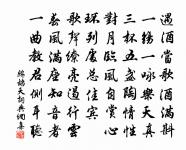 遇酒當歌酒滿斟
一觴一詠樂天真
三杯五盞陶情性
對月臨風自賞心
環列處總佳賓
歌聲繚亮遏行雲
春風滿座知音者
一曲教君側耳聽